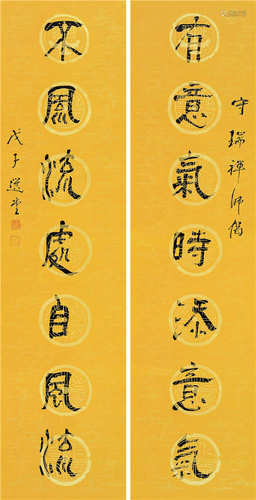 守瑞禪師偈
有意氣時添意氣
不風流處自風流
戊子選堂